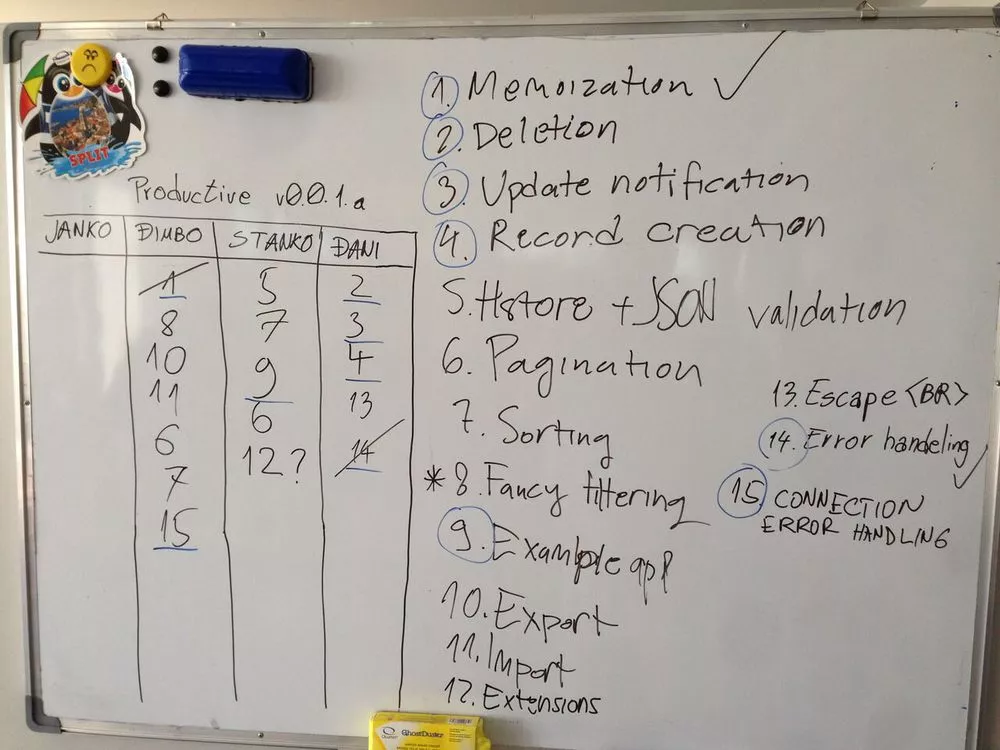 SPLIT
Productive v0.0.1.a
JANKO ĐIMBO STANKO ĐANI
1 5 2
8 7 3
10 9 4
11 6 13
6 12? 14
7
15
1. Memoization ✓
2. Deletion
3. Update notification
4. Record creation
5. Hstore + JSON validation
6. Pagination
7. Sorting
*8. Fancy filtering
9. Example app
10. Export
11. Import
12. Extensions
13. Escape <BR>
14. Error handeling ✓
15. CONNECTION
ERROR HANDLING
Quartet
GhostDuster